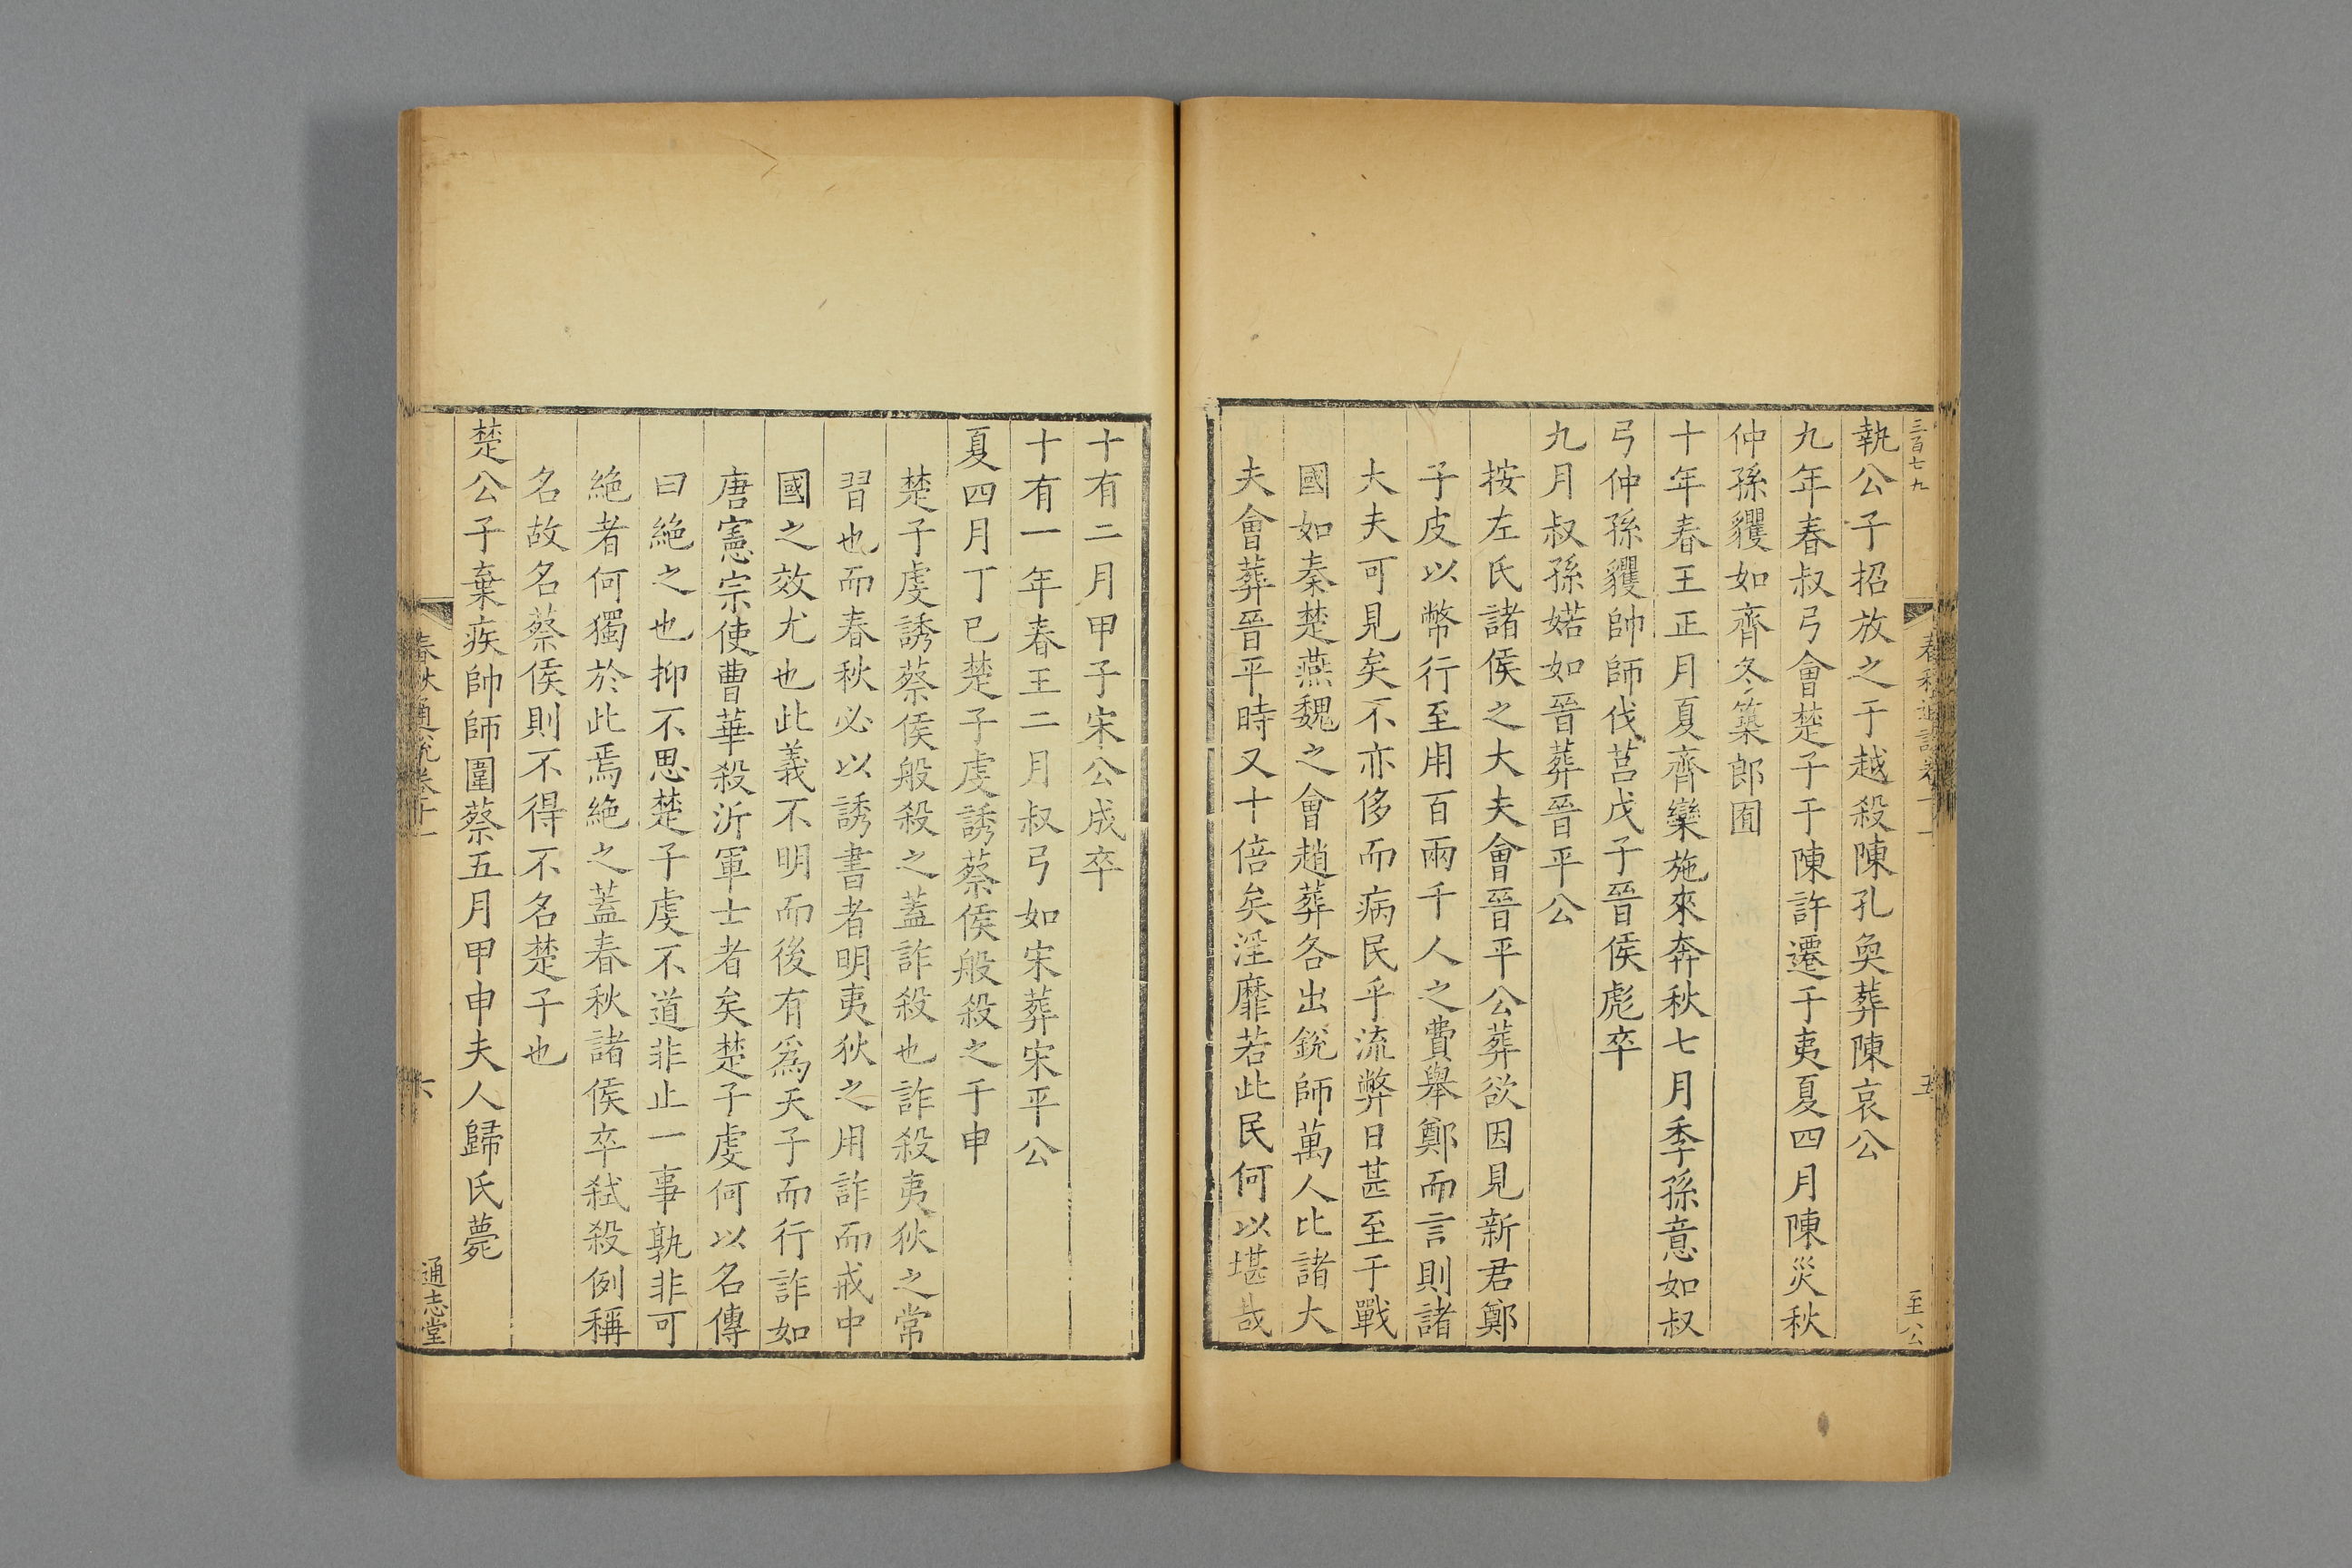 三百七九
春秋通說卷十一
五
至公
執公子招放之于越殺陳孔奐葬陳哀公
九年春叔弓會楚子于陳許遷于夷夏四月陳災秋
仲孫貜如齊冬築郎囿
十年春王正月夏齊欒施來奔秋七月季孫意如叔
弓仲孫貜帥師伐莒戊子晉侯彪卒
九月叔孫婼如晉葬晉平公
按左氏諸侯之大夫會晉平公葬欲因見新君鄭
子皮以幣行至用百兩千人之費舉鄭而言則諸
大夫可見矣不亦侈而病民乎流弊日甚至于戰
國如秦楚燕魏之會趙葬各出銳師萬人比諸大
夫會葬晉平時又十倍矣淫靡若此民何以堪哉
十有二月甲子宋公成卒
十有一年春王二月叔弓如宋葬宋平公
夏四月丁巳楚子虔誘蔡侯般殺之于申
楚子虔誘蔡侯般殺之蓋詐殺也詐殺夷狄之常
習也而春秋必以誘書者明夷狄之用詐而戒中
國之效尤也此義不明而後有爲天子而行詐如
唐憲宗使曹華殺沂軍士者矣楚子虔何以名傳
曰絶之也抑不思楚子虔不道非止一事孰非可
絶者何獨於此焉絶之蓋春秋諸侯卒弑殺例稱
名故名蔡侯則不得不名楚子也
楚公子棄疾帥師圍蔡五月甲申夫人歸氏薨
春秋通說卷十一
六
通志堂